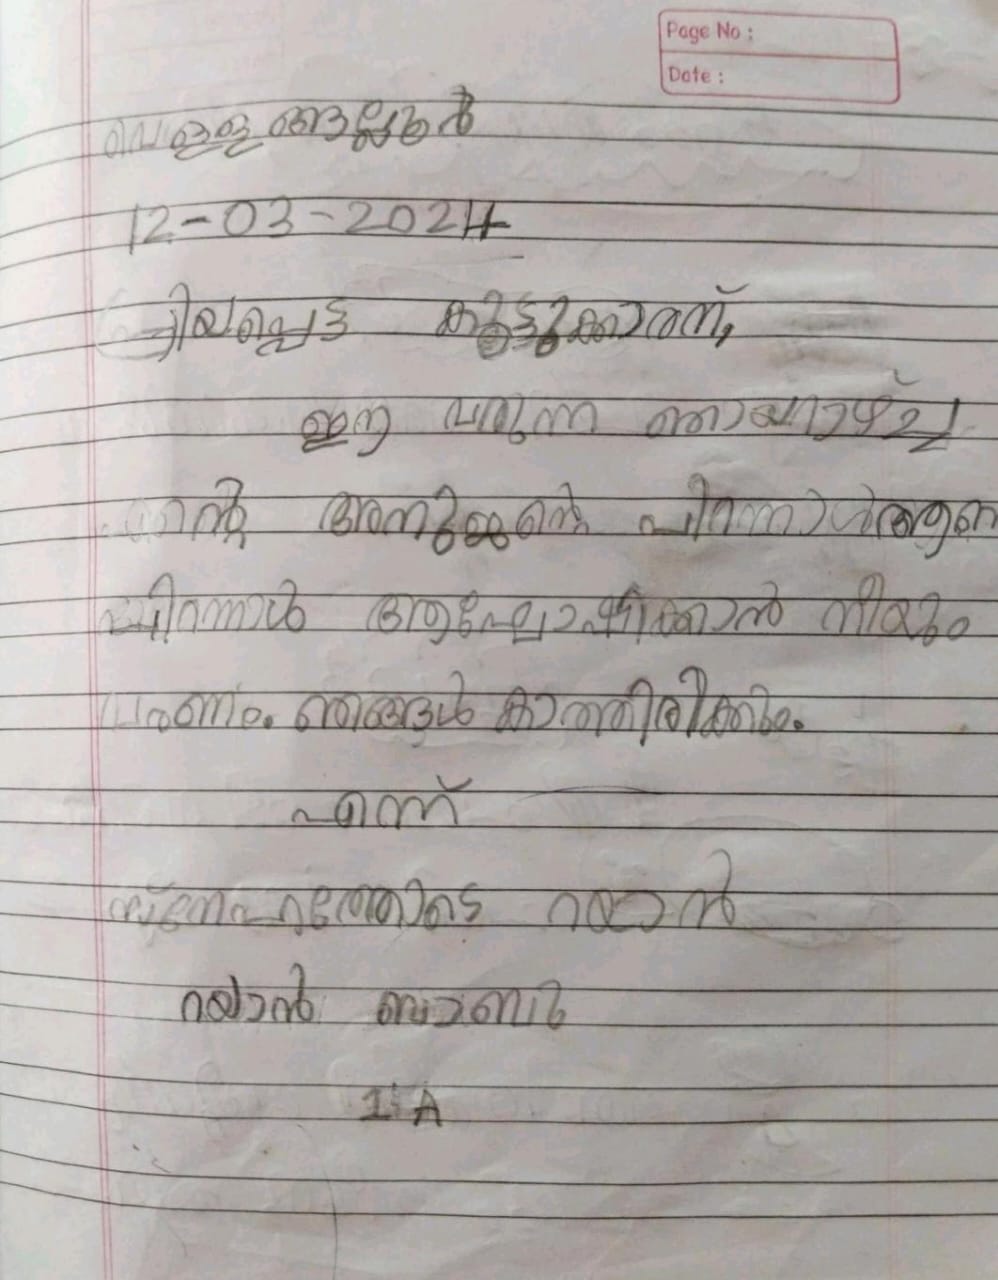 Page No :
Date :
വെള്ളാങ്ങല്ലൂർ
12-03-2024
പ്രിയപ്പെട്ട കൂട്ടുക്കാരന്,
ഈ വരുന്ന ഞായറാഴ്ച്ച
എന്റെ അനുജന്റെ പിറന്നാൾ ആണ
പിറന്നാൾ ആഘോഷിക്കാൻ നീയും
വരണം. ഞങ്ങൾ കാത്തിരിക്കും.
എന്ന്
സ്നേഹത്തോടെ റയാൻ
റയാൻ ബാബു
1 A